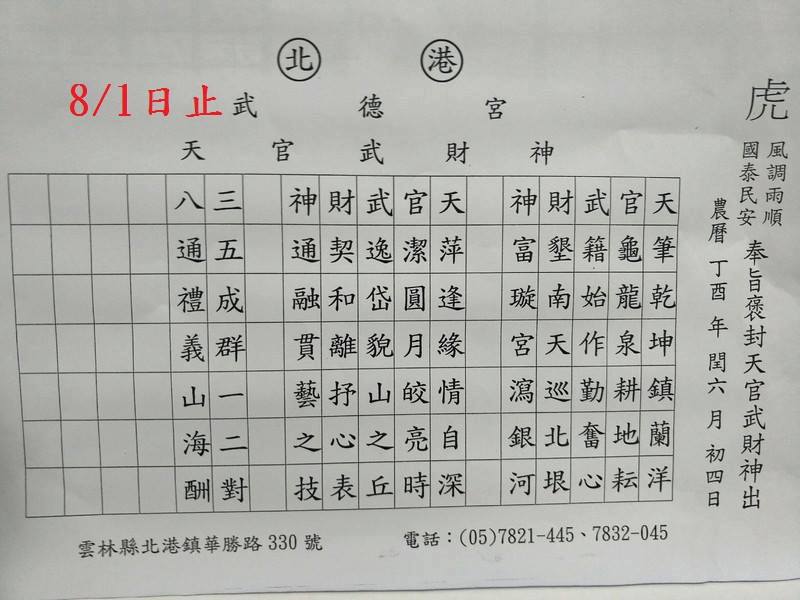 北 港
8/1日止
武德宮
天官武財神
虎
風調雨順
國泰民安
奉旨褒封天官武財神出
農曆 丁酉 年 閏六 月 初四日
天筆乾坤鎮蘭洋
官龜龍泉耕地耘
武籍始作勤奮心
財墾南天巡北垠
神富璇宮瀉銀河
天萍逢緣情自深
官潔圓月皎亮時
武逸岱貌山之丘
財契和離抒心表
神通融貫藝之技
三五成群一二對
八通禮義山海酬
雲林縣北港鎮華勝路 330 號
電話：(05)7821-445、7832-045